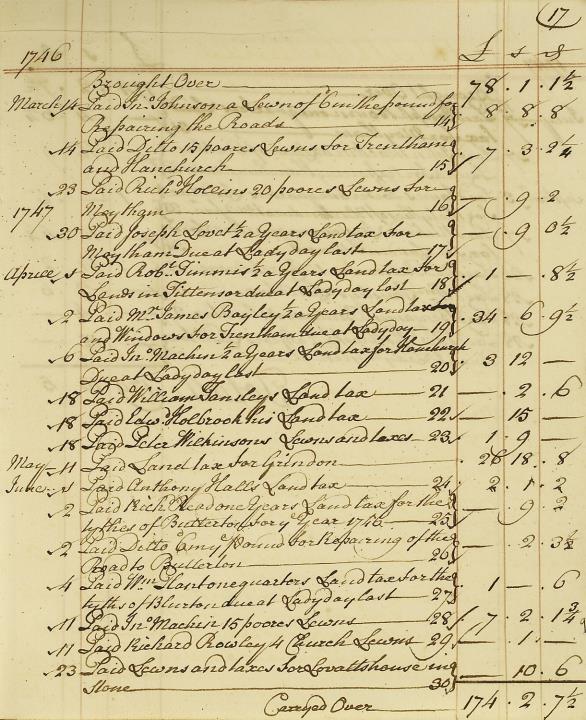 17
1746 £ s d
Brought Over 78 . 1 . 1½
March 14 Paid Jno Johnson a Lewn of 6 in the pound for
Repairing the Roads 14 8 . 8 . 8
14 Paid Ditto 15 poores Lewns for Trentham
and Hanchurch 15 7 . 3 . 2¼
23 Paid Richd Hollins 20 poores Lewns for
Meytham 16 — . 9 . 2
1747
30 Paid Joseph Lovet ½ a Years Land tax for
Meytham Due at Ladyday last 17 — . 9 . 0½
Aprill 1 Paid Robt Timmis ½ a Years Land tax for
Lands in Tittensor due at Ladyday last 18 1 — . 8½
2 Paid Mr James Bayley ½ a Years Land tax
and Windows for Trentham due at Ladyday 19 34 . 6 . 9½
6 Paid Jno Machin ½ a Years Land tax for Hanchurch
Due at Ladyday last 20 3 12 —
18 Paid William Tansleys Land tax 21 — . 2 . 6
18 Paid Edwd Holbrook his Land tax 22 — . 15 —
18 Paid Peter Wilkinsons Lewns and taxes 23 1 . 9 —
May 11 Paid Land tax for Grindon 26 18 . 8
June 1 Paid Anthony Halls Land tax 24 2 . 1 . 2
2 Paid Richd Read one Years Land tax for the
tythes of Butterton for ye Year 1746 25 — . 9 . 2
2 Paid Ditto 6 in ye pound for Repairing of the
Road to Butterton 26 — . 2 . 3½
4 Paid Wm Plant one quarters Land tax for the
tyths of Blurton due at Ladyday last 27 1 — . 6
11 Paid Jno Machin 15 poores Lewns 28 7 . 2 . 1¾
11 Paid Richard Rowley 4 Church Lewns 29 — . 1 . —
23 Paid Lewns and taxes for Lovatts house in
Stone 30 — . 10 . 6
Carryed Over 174 . 2 . 7½